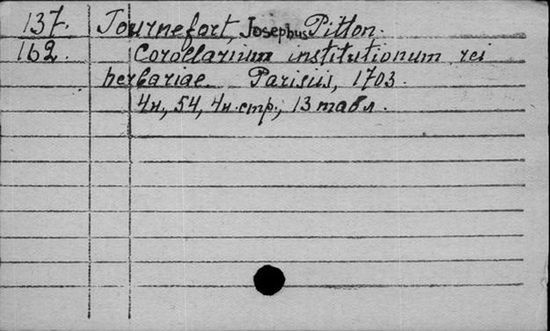 137. Tournefort, Josephus Pitton.
162. Corollarium institutionum rei
herbariae. Parisiis, 1703.
4н, 54, 4н. стр., 13 табл.